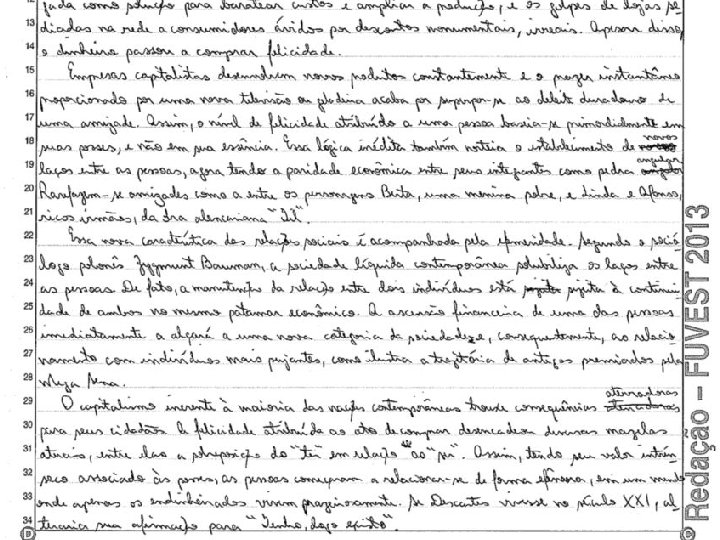 12 jada como solução para baratear custos e ampliar a produção, e os golpes de lojas se-
13 diadas na rede a consumidores ávidos por descontos monumentais, irreais. Apesar disso,
14 o dinheiro passou a comprar felicidade.
15 Empresas capitalistas desenvolvem novos produtos constantemente e o prazer instantâneo
16 proporcionado por uma nova televisão ou geladeira acaba por sobrepor-se ao deleite duradouro de
17 uma amizade. Assim, o nível de felicidade atribuído a uma pessoa baseia-se primordialmente em
18 suas posses, e não em sua essência. Essa lógica inédita também norteia o estabelecimento de novos
19 laços entre as pessoas, agora tendo a paridade econômica entre seus integrantes como pedra angular.
20 Rarefazem-se amizades como a entre os personagens Berta, uma menina pobre, e Linda e Afonso,
21 ricos irmãos, da obra alencariana "Til".
22 Essa nova característica das relações sociais é acompanhada pela efemeridade. Segundo o soció-
23 logo polonês Zygmunt Bauman, a sociedade líquida contemporânea solubiliza os laços entre
24 as pessoas. De fato, a manutenção da relação entre dois indivíduos está sujeita à continui-
25 dade de ambos no mesmo patamar econômico. A ascensão financeira de uma das pessoas
26 imediatamente a alçará a uma nova categoria da sociedade e, consequentemente, ao relacio-
27 namento com indivíduos mais pujantes, como ilustra a trajetória de antigos premiados pela
28 Mega Sena.
29 O capitalismo inerente à maioria das nações contemporâneas trouxe consequências aterradoras
30 para seus cidadãos. A felicidade atribuída ao ato de comprar desencadeia diversas mazelas
31 atuais, entre elas a sobreposição do "ter" em relação ao "ser". Assim, tendo seu valor intrín-
32 seco associado às posses, as pessoas começaram a relacionar-se de forma efêmera, em um mundo
33 onde apenas os endinheirados vivem prazerosamente. Se Descartes vivesse no século XXI, al-
34 teraria sua afirmação para "Tenho, logo existo".
Redação – FUVEST 2013